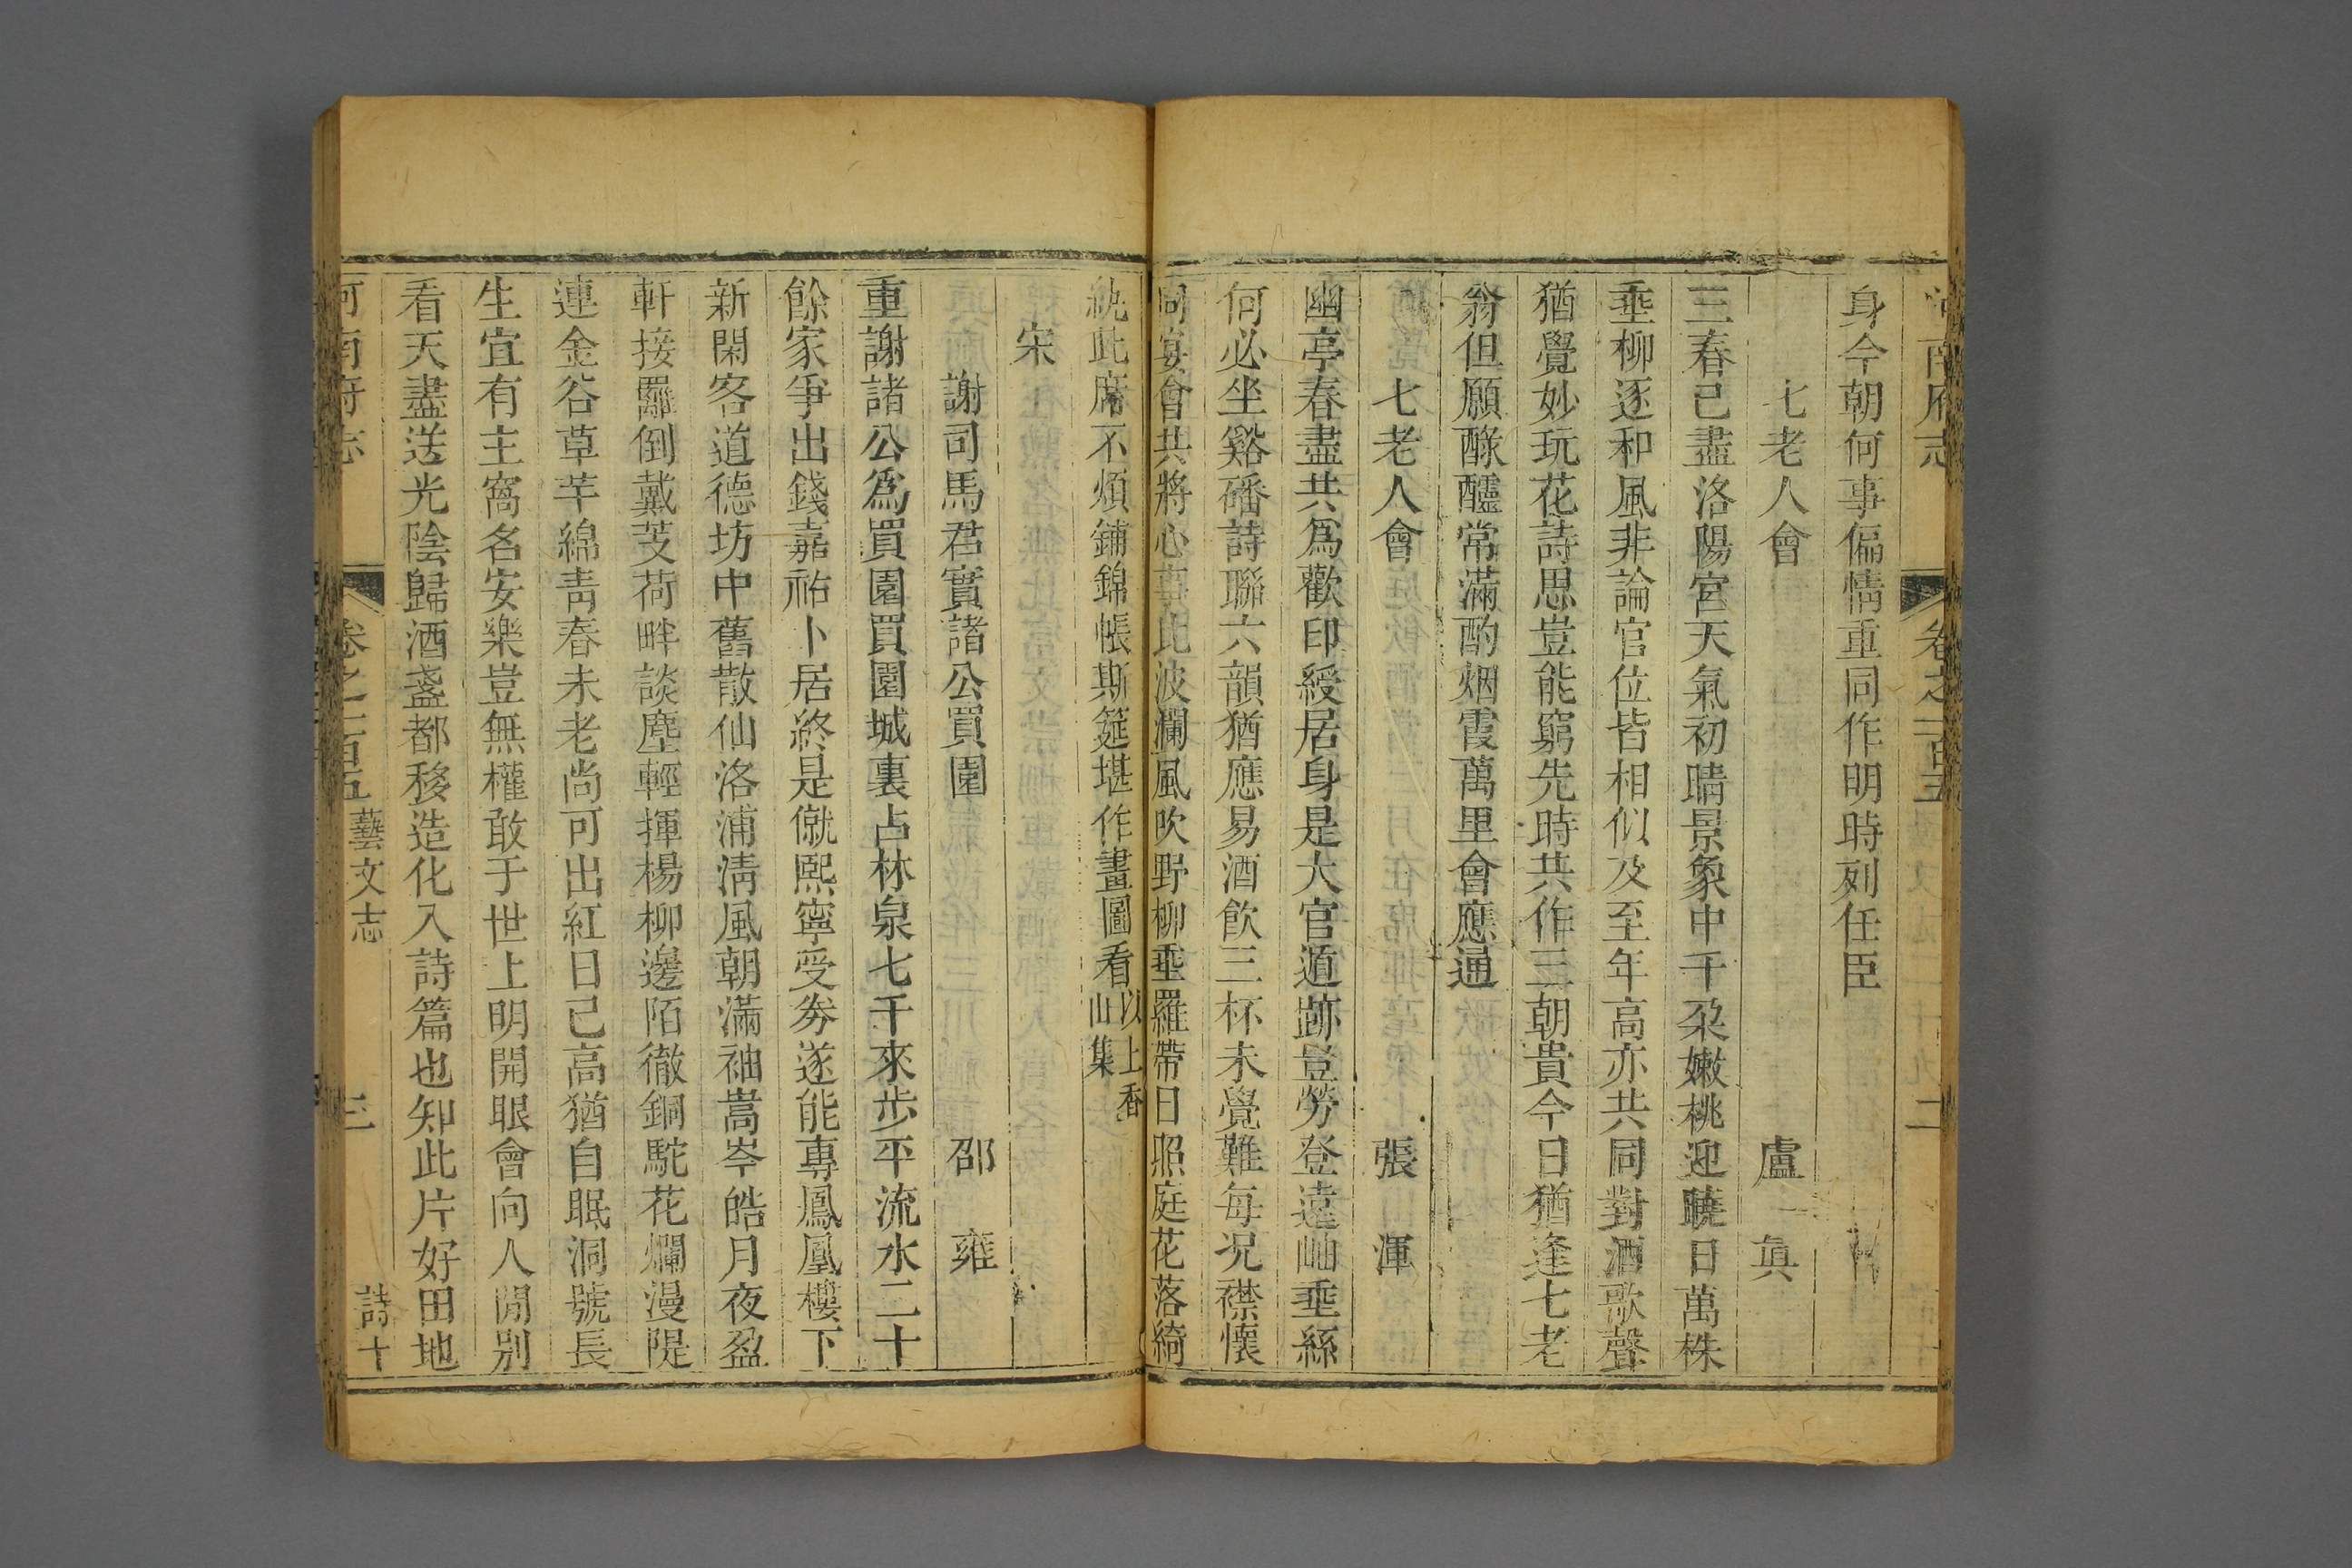 河南府志 卷之一百五 二
身今朝何事偏情重同作明時列任臣
七老人會 盧真
三春已盡洛陽宮天氣初晴景象中千朶嫩桃迎曉日萬株
垂柳逐和風非論官位皆相似及至年高亦共同對酒歌聲
猶覺妙玩花詩思豈能窮先時共作三朝貴今日猶逢七老
翁但願醁醽常滿酌烟霞萬里會應通
七老人會 張渾
幽亭春盡共爲歡印綬居身是大官遁跡豈勞登遠岫垂絲
何必坐谿磻詩聯六韻猶應易酒飮三杯未覺難每况襟懷
同宴會共將心事比波瀾風吹野柳垂羅帶日照庭花落綺
紈此席不煩鋪錦帳斯筵堪作畫圖看以上香山集
宋
謝司馬君實諸公買園 邵雍
重謝諸公爲買園買園城裏占林泉七千來步平流水二十
餘家爭出錢嘉祐卜居終是僦熙寧受券遂能專鳳凰樓下
新閑客道德坊中舊散仙洛浦淸風朝滿袖嵩岑皓月夜盈
軒接䍦倒戴芰荷畔談塵輕揮楊柳邊陌徹銅駝花爛漫隄
連金谷草芊綿靑春未老尚可出紅日已高猶自眠洞號長
生宜有主窩名安樂豈無權敢于世上明開眼會向人閒別
看天盡送光陰歸酒盞都移造化入詩篇也知此片好田地
河南府志 卷之一百五 藝文志 三 詩十